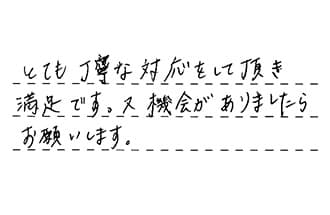 とても丁寧な対応をして頂き
満足です。又機会がありましたら
お願いします。